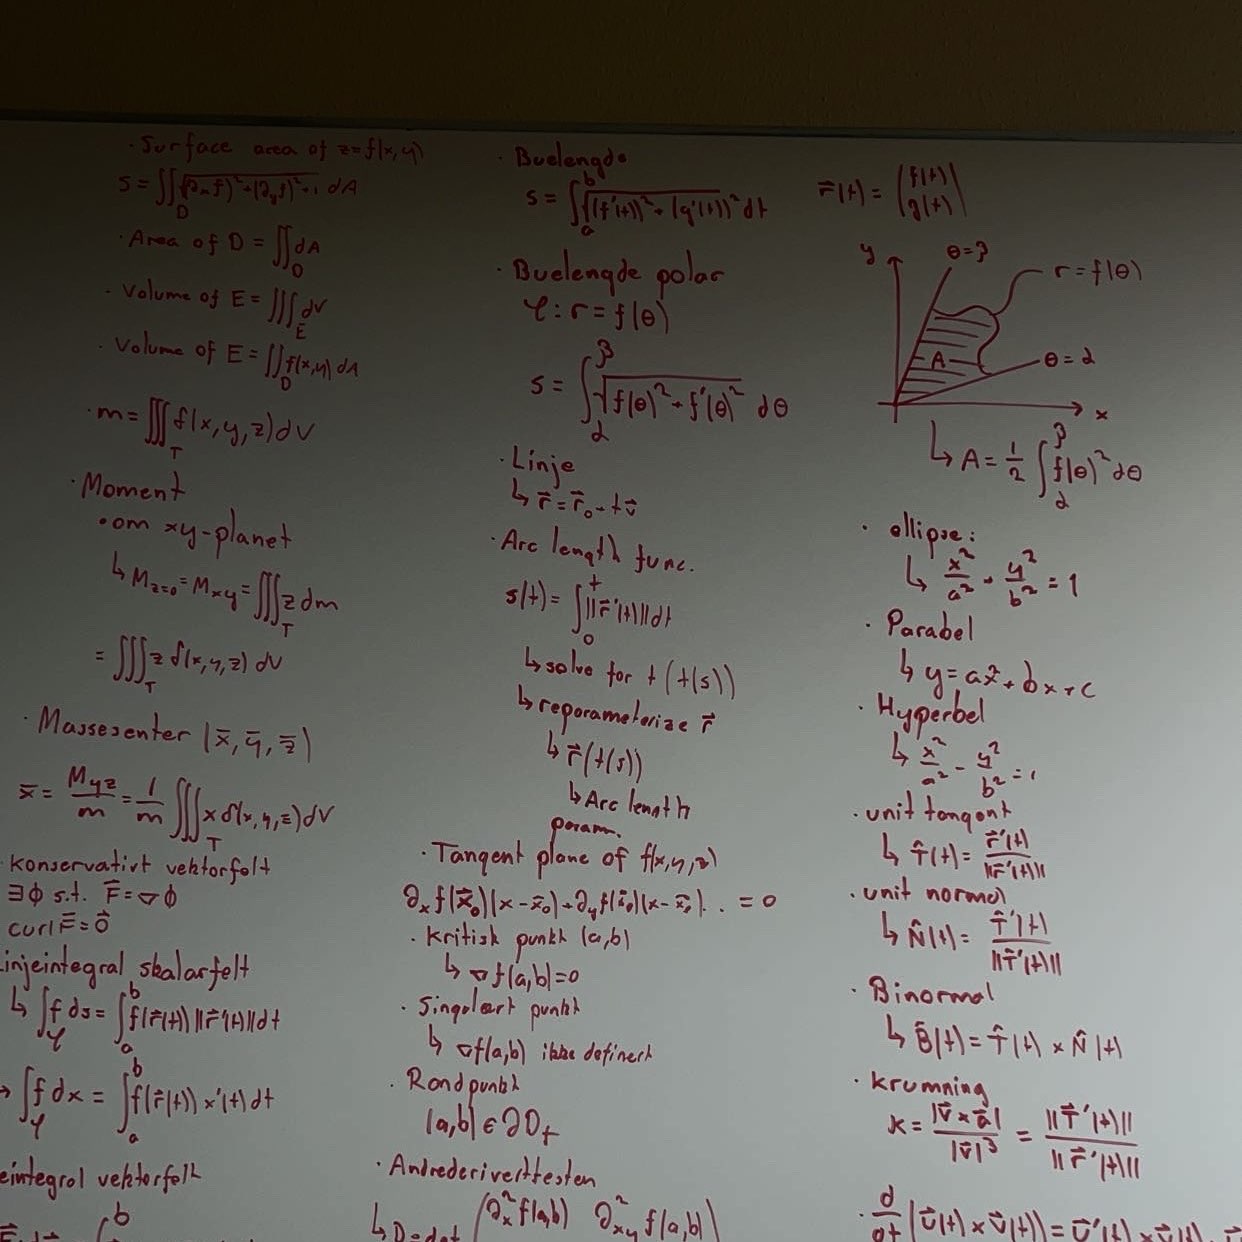 · Surface area of z=f(x,y)
S = ∬_D √((∂ₓf)²+(∂_yf)²+1) dA
· Area of D = ∬_D dA
· Volume of E = ∭_E dV
· Volume of E = ∬_D f(x,y) dA
· m = ∭_T δ(x,y,z) dV
· Moment
• om xy-planet
↳ M_{z=0} = M_{xy} = ∭_T z dm
= ∭_T z δ(x,y,z) dV
· Massesenter (x̄, ȳ, z̄)
x̄ = M_{yz}/m = 1/m ∭_T x δ(x,y,z) dV
· konservativt vektorfelt
∃ϕ s.t. F⃗ = ∇ϕ
curl F⃗ = 0⃗
Linjeintegral skalarfelt
↳ ∫_φ f ds = ∫_a^b f(r⃗(t)) ||r⃗'(t)|| dt
→ ∫_φ f dx = ∫_a^b f(r⃗(t)) x'(t) dt
eintegral vektorfelt
b
· Buelengde
S = ∫_a^b √((f'(t))² + (g'(t))²) dt
· Buelengde polar
φ: r = f(θ)
S = ∫_α^β √(f(θ)² + f'(θ)²) dθ
· Linje
↳ r⃗ = r⃗₀ + t v⃗
· Arc length func.
s(t) = ∫_0^t ||r⃗'(t)|| dt
↳ solve for t (t(s))
↳ reparameterize r⃗
↳ r⃗(t(s))
↳ Arc length
param.
· Tangent plane of f(x,y,z)
∂ₓf(x⃗₀)(x-x⃗₀)+∂_yf(x⃗₀)(x-x⃗₀)... = 0
· Kritisk punkt (a,b)
↳ ∇f(a,b)=0
· Singulært punkt
↳ ∇f(a,b) ikke definert
· Randpunkt
(a,b) ∈ ∂D_f
· Andrederiverttesten
↳ D=det ( ∂ₓ²f(a,b) ∂²_{xy} f(a,b) )
r⃗(t) = ( f(t)
g(t) )
y
θ=β
r = f(θ)
A
θ=α
x
↳ A = 1/2 ∫_α^β f(θ)² dθ
· ellipse:
↳ x²/a² + y²/b² = 1
· Parabel
↳ y = ax² + bx + c
· Hyperbel
↳ x²/a² - y²/b² = 1
· unit tangent
↳ T̂(t) = r⃗'(t)/||r⃗'(t)||
· unit normal
↳ N̂(t) = T̂'(t)/||T̂'(t)||
· Binormal
↳ B̂(t) = T̂(t) × N̂(t)
· krumning
κ = |v⃗×a⃗|/|v⃗|³ = ||T⃗'(t)||/||r⃗'(t)||
· d/dt (u⃗(t) × v⃗(t)) = u⃗'(t) × v⃗(t)